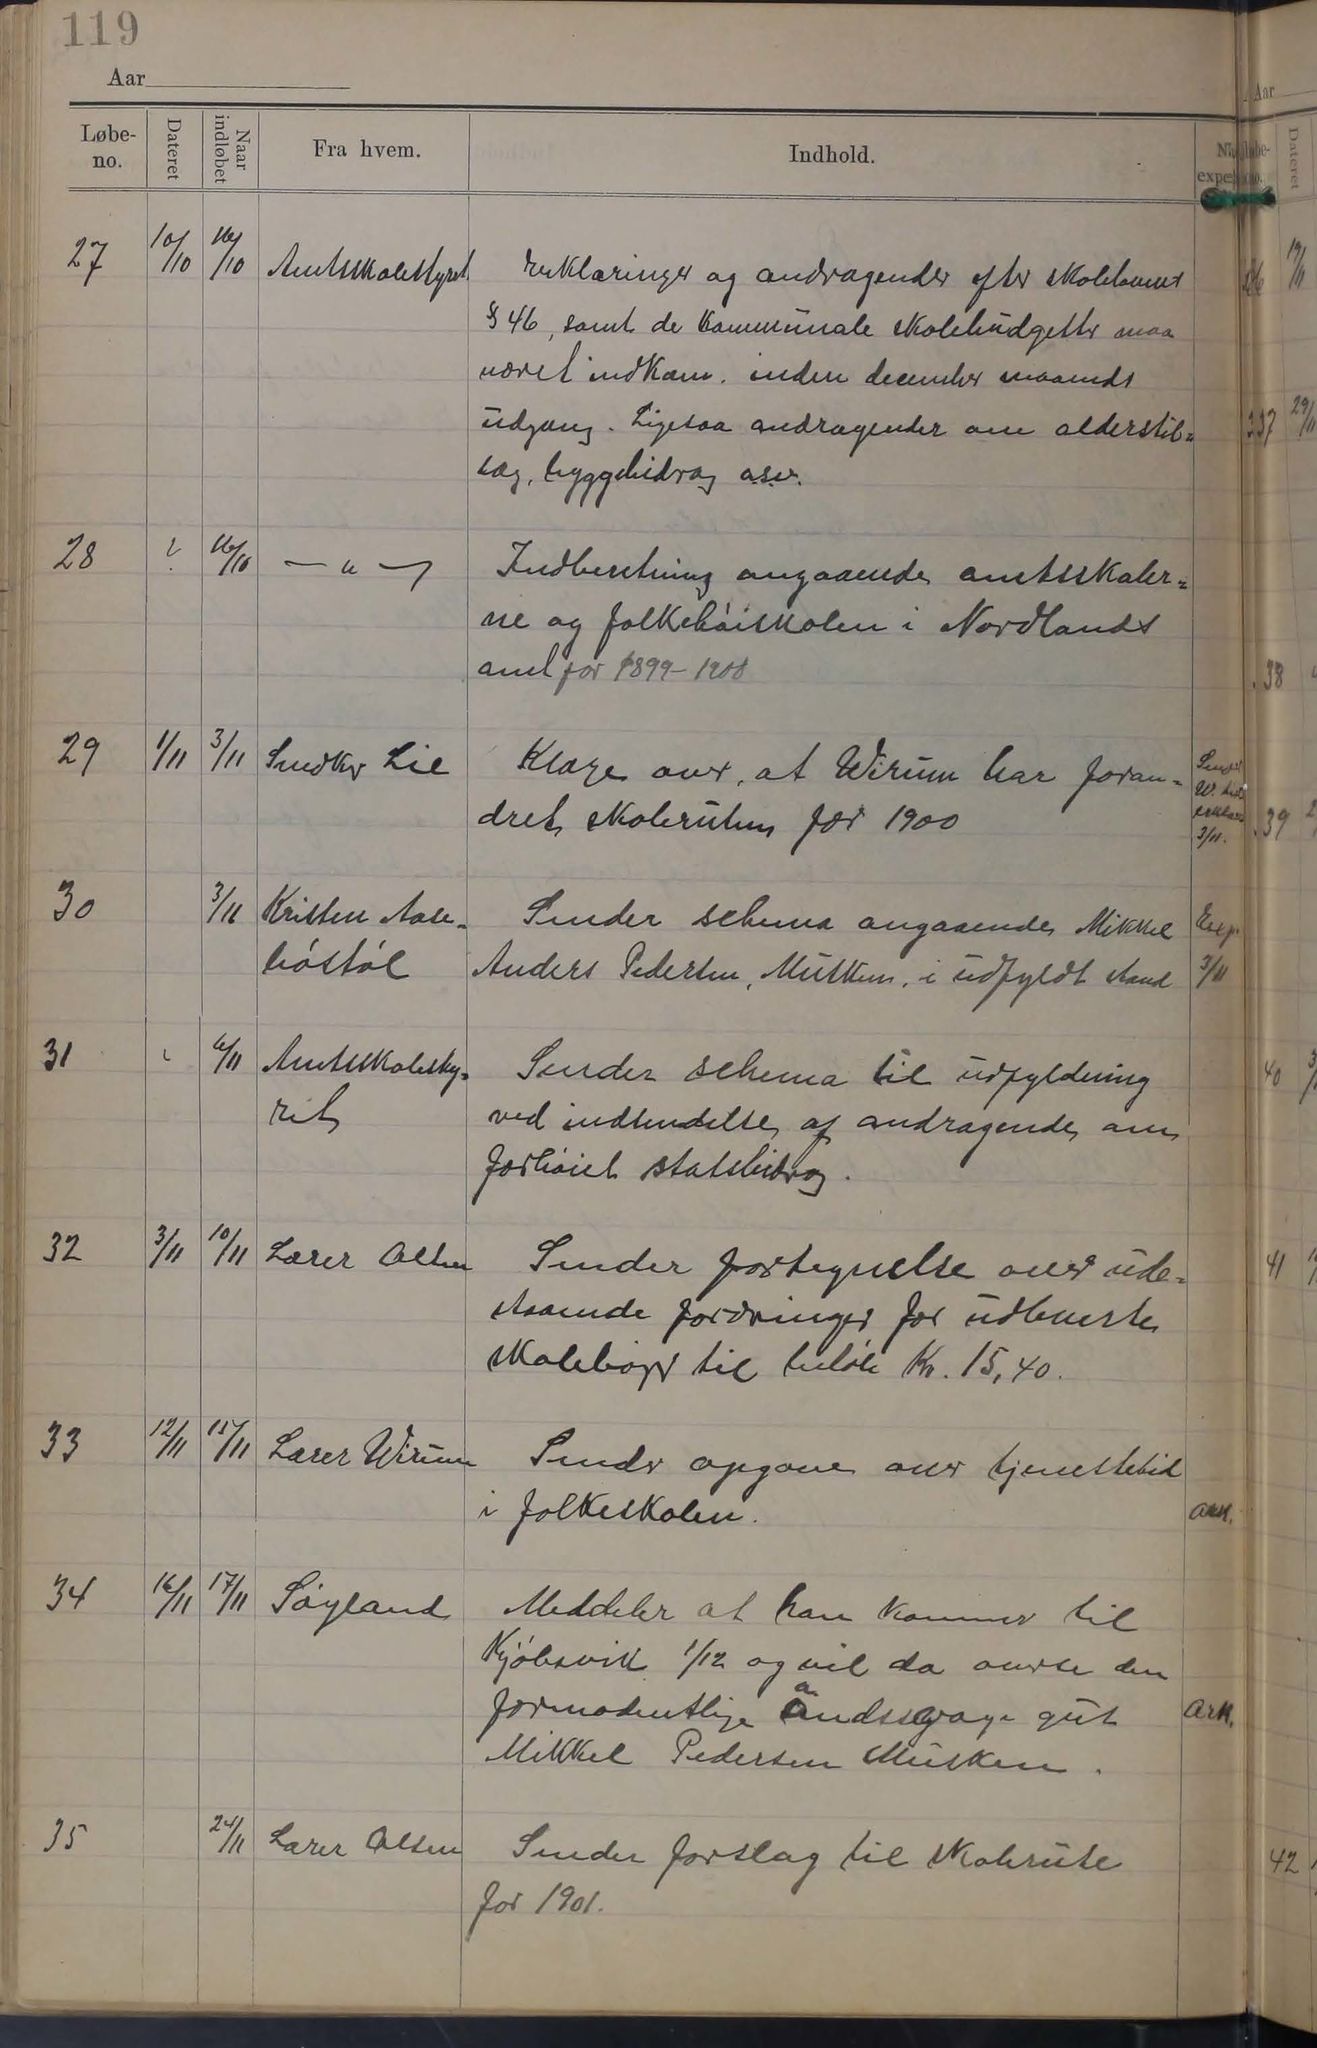 119
Aar
Løbe-
no.
Dateret
Naar
indløbet
Fra hvem.
Indhold.
27 10/10 16/10 Amtsskolestyret Erklæringer og andragender efter skolelovens
§ 46, samt de kommunale skolebudgetter maa
været indkom. inden december maaneds
udgang. Ligesaa andragender om alderstil=
læg, byggebidrag o.s.v.
28 ? 16/10 — " — Indberetning angaaende amtsskoler=
ne og folkehöiskolen i Nordlands
amt for 1899-1900
29 1/11 3/11 Snedker Lie Klage over, at Wirum har foran=
dret skoleruten for 1900
3/11.
30 3/11 Kristen Aase- Sender schema angaaende Mikkel Exp.
böstöl Anders Pedersen, Musken, i udfyldt stand 3/11
31 6/11 Amtsskolesty= Sender schema til udfyldning
ret ved indsendelse af andragende om
forhöiet statsbidrag.
32 3/11 10/11 Lærer Olsen Sender fortegnelse over ude=
staaende fordringer for udleverte
skolebøger til beløb Kr. 15,40.
33 12/11 15/11 Lærer Wirum Sender opgave over tjenestetid
i folkeskolen. Ark.
34 16/11 17/11 Söyland Meddeler at han kommer til
Kjöbsvik 1/12 og vil da overse den
formodentlige åndssvage gut Ark.
Mikkel Pedersen Musken.
35 24/11 Lærer Olsen Sender forslag til skolerute
for 1901.
Aar
Dateret
19/11
337 29/11
38
39
40
41
42